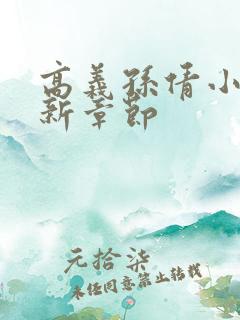 高義孫倩小
新章節
元拾柒
未经同意禁止转载